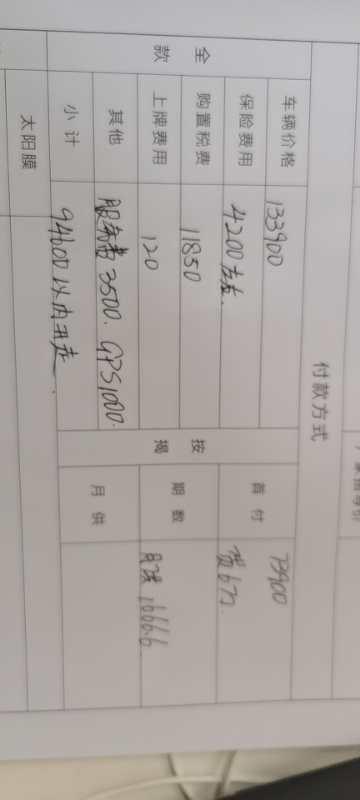 付款方式
全款
按揭
车辆价格 133900
首付 73900
贷6万.
保险费用 4200左右.
购置税费 11850
期数 月供1666.6
上牌费用 120
其他 服务费3500. GPS1000.
月供
小计 94600以内开走.
太阳膜